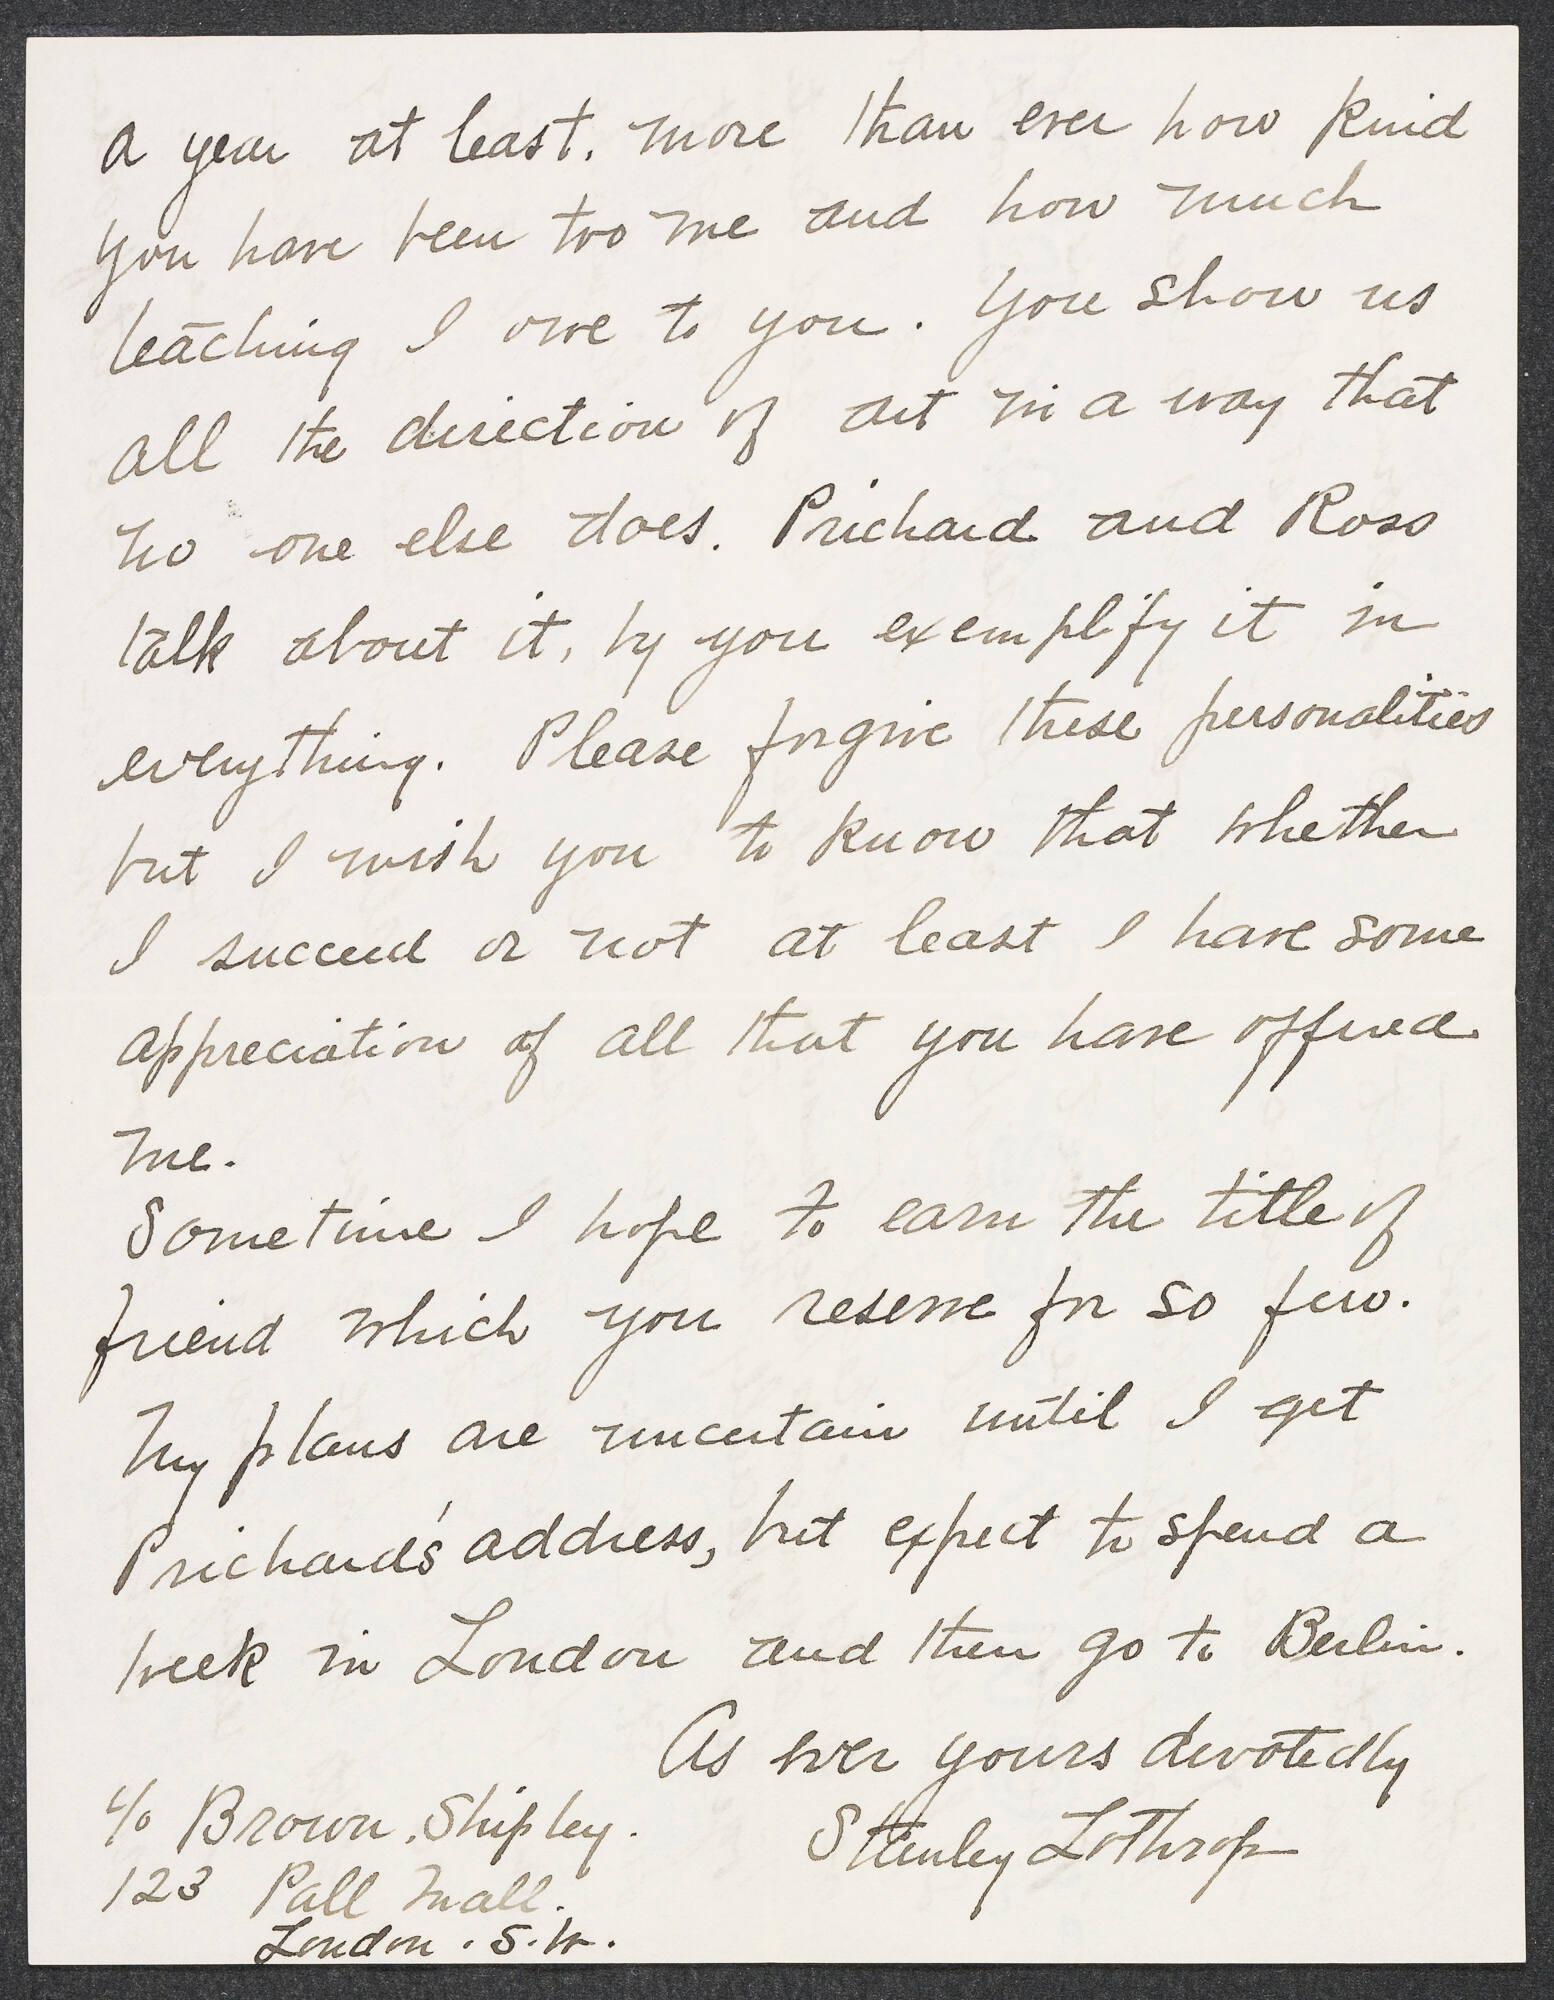 a year at least, more than ever how kind
you have been too me and how much
teaching I owe to you. You show us
all the direction of art in a way that
no one else does. Prichard and Ross
talk about it, by you exemplify it in
everything. Please forgive these personalities
but I wish you to know that whether
I succeed or not at least I have some
appreciation of all that you have offered
me.
Sometime I hope to earn the title of
friend which you reserve for so few.
My plans are uncertain until I get
Prichard's address, but expect to spend a
week in London and then go to Berlin.
As ever yours devotedly
Stanley Lothrop
c/o Brown. Shipley.
123 Pall Mall.
London. S.W.